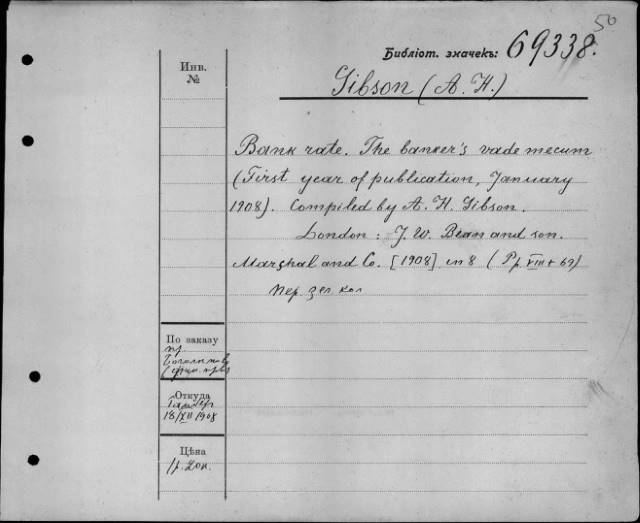 50
Библіот. значекъ: 69338.
Инв.
№
Gibson (A. H.)
Bank rate. The banker's vade mecum
(First year of publication, January
1908). Compiled by A. H. Gibson.
London: J. W. Bean and son.
Marshal and Co. [1908] in 8 (Pp. VIII + 69)
пер. зел. кол
По заказу
пр.
Откуда
18/XII 1908
Цѣна
1 р. 20 к.